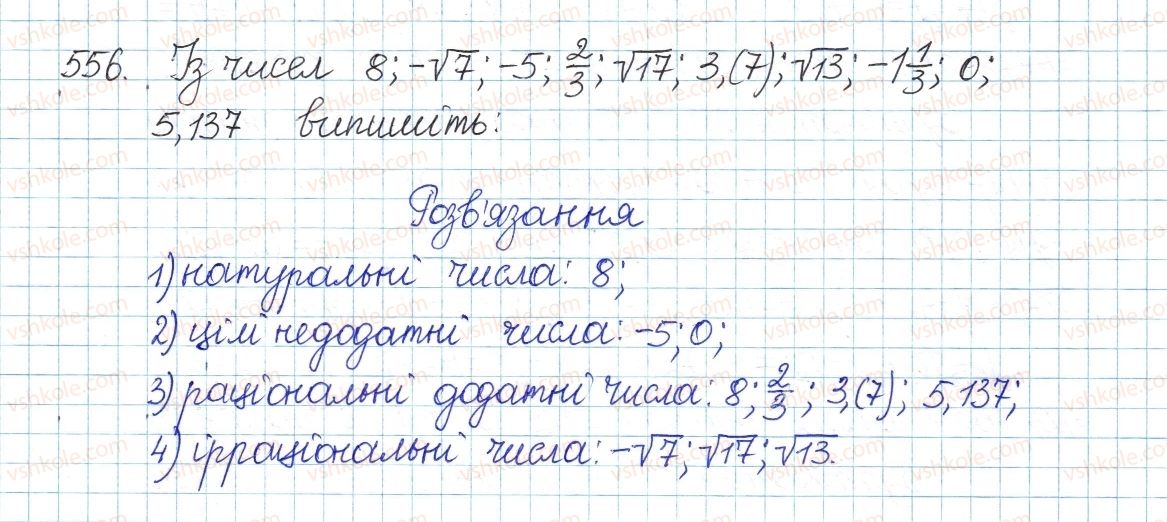 556. Із чисел 8; -√7; -5; 2/3; √17; 3,(7); √13; -1 1/3; 0;
5,137 випишіть:
Розв'язання
1) натуральні числа: 8;
2) цілі недодатні числа: -5; 0;
3) раціональні додатні числа: 8; 2/3; 3,(7); 5,137;
4) ірраціональні числа: -√7; √17; √13.